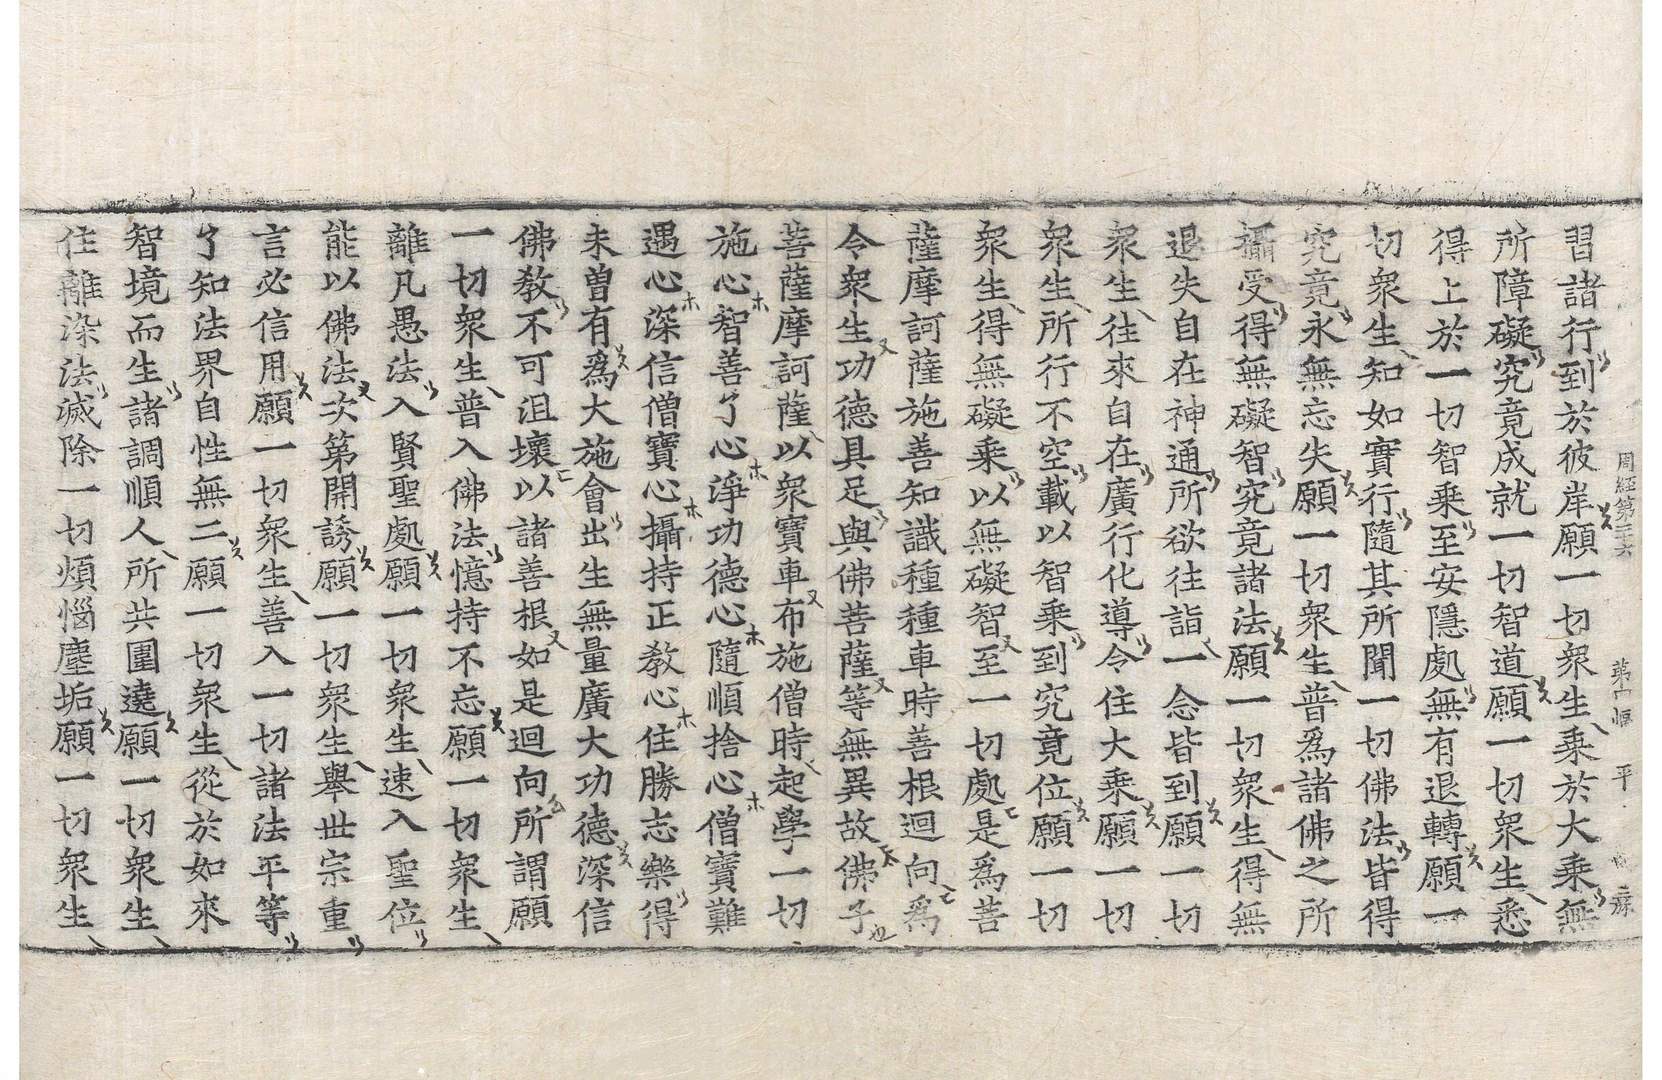 周經第二十六
平
習諸行到於彼岸願一切衆生乘於大乘無
所障礙究竟成就一切智道願一切衆生悉
得上於一切智乘至安隱處無有退轉願一
切衆生知如實行隨其所聞一切佛法皆得
究竟永無忘失願一切衆生普爲諸佛之所
攝受得無礙智究竟諸法願一切衆生得無
退失自在神通所欲往詣一念皆到願一切
衆生往來自在廣行化導令住大乘願一切
衆生所行不空載以智乘到究竟位願一切
衆生得無礙乘以無礙智至一切處是爲菩
薩摩訶薩施善知識種種車時善根迴向爲
令衆生功德具足與佛菩薩等無異故佛子
菩薩摩訶薩以衆寶車布施僧時起學一切
施心智善了心淨功德心隨順捨心僧寶難
遇心深信僧寶心攝持正教心住勝志樂得
未曾有爲大施會出生無量廣大功德深信
佛教不可沮壞以諸善根如是迴向所謂願
一切衆生普入佛法憶持不忘願一切衆生
離凡愚法入賢聖處願一切衆生速入聖位
能以佛法次第開誘願一切衆生舉世宗重
言必信用願一切衆生善入一切諸法平等
了知法界自性無二願一切衆生從於如來
智境而生諸調順人所共圍遶願一切衆生
住離染法滅除一切煩惱塵垢願一切衆生